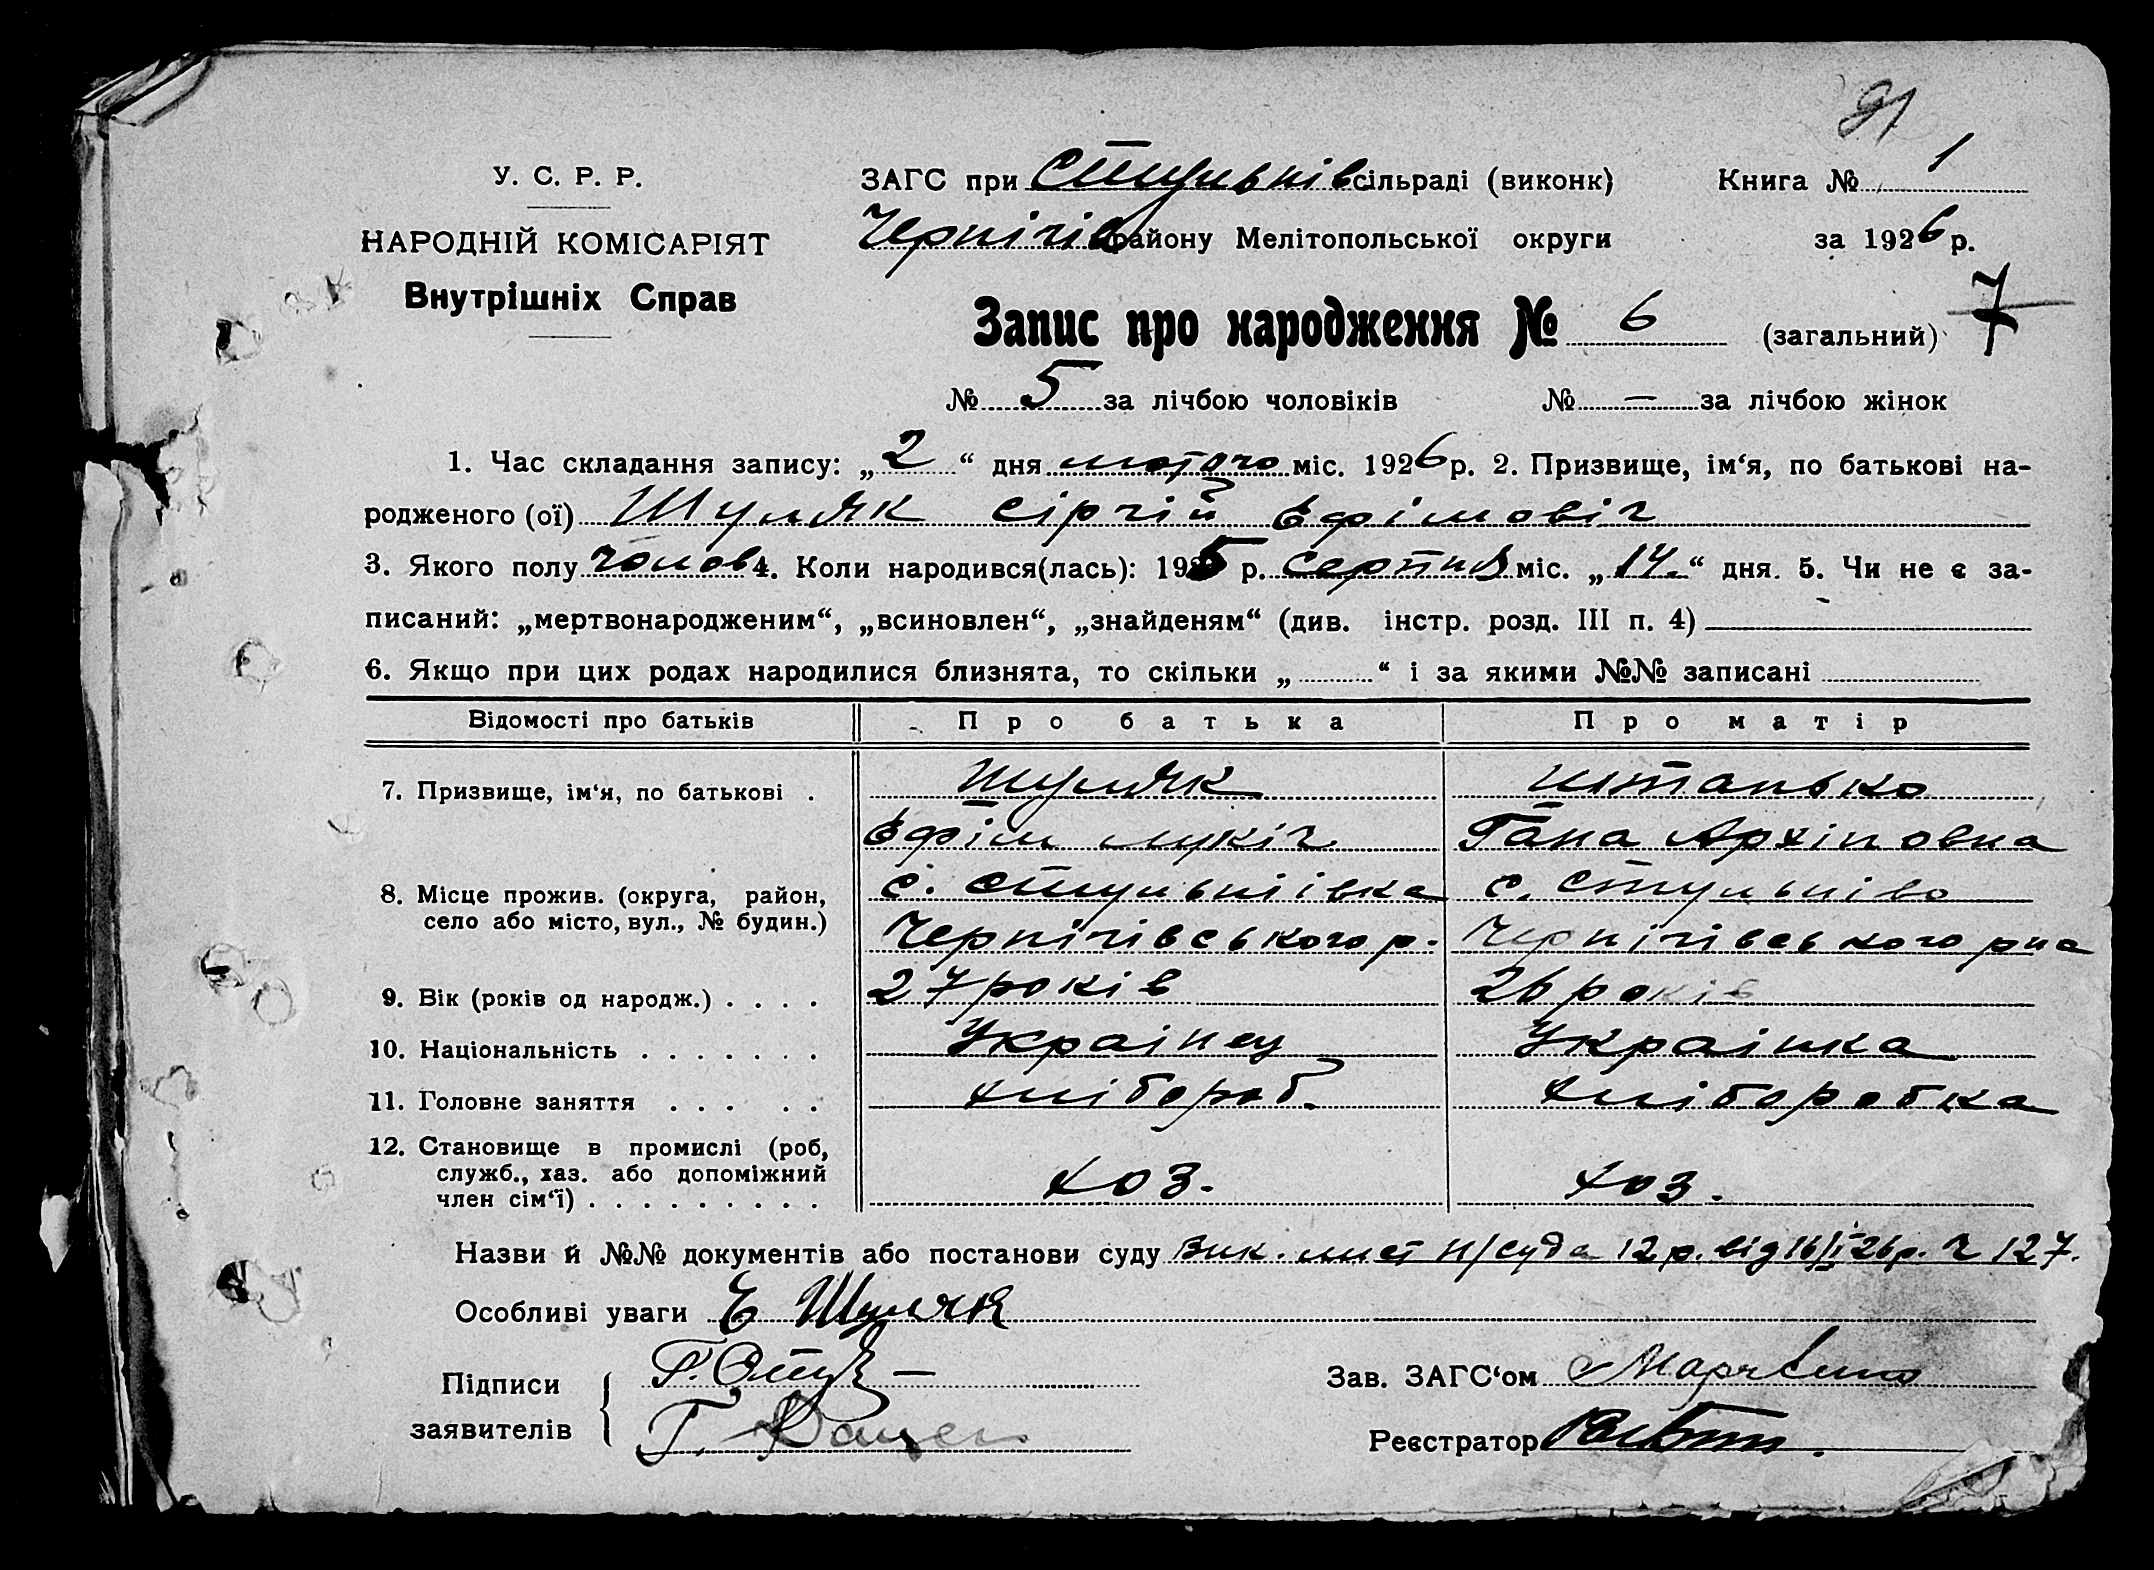 91
У. С. Р. Р.
ЗАГС при Стульнівсільраді (виконк) Книга № 1
НАРОДНІЙ КОМІСАРІЯТ
Чернігів району Мелітопольської округи за 1926 р.
Внутрішніх Справ
Запис про народження № 6 (загальний) 7
№ 5 за лічбою чоловіків № — за лічбою жінок
1. Час складання запису: „2“ дня лютого міс. 1926 р. 2. Призвище, ім‘я, по батькові на-
родженого (ої) Шуляк Сіргій Ефімовіч
3. Якого полу чолов 4. Коли народився(лась): 1925 р. серпня міс. „14“ дня. 5. Чи не є за-
писаний: „мертвонародженим“, „всиновлен“, „знайденям“ (див. інстр. розд. III п. 4)
6. Якщо при цих родах народилися близнята, то скільки „ “ і за якими №№ записані
Відомості про батьків Про батька Про матір
7. Призвище, ім‘я, по батькові . Шуляк Штанько
Ефім Лукіч Гана Архіповна
8. Місце прожив. (округа, район, с. Стульніївка с. Стульніво
село або місто, вул., № будин.) Чернігівського р. Чернігівського рна
9. Вік (років од народж.) . . . . 27 років 26 років
10. Національність . . . . . . . Украінец Украінка
11. Головне заняття . . . . . хлібороб. хліборобка
12. Становище в промислі (роб,
служб., хаз. або допоміжний
член сім‘ї) . . . . . . . . . хоз. хоз.
Назви й №№ документів або постанови суду Вик. лист н/суда 12 р. від 16/I 26 р. ч 127.
Особливі уваги Е Шуляк
Підписи Г. Зав. ЗАГС‘ом
заявителів Г. Реєстратор